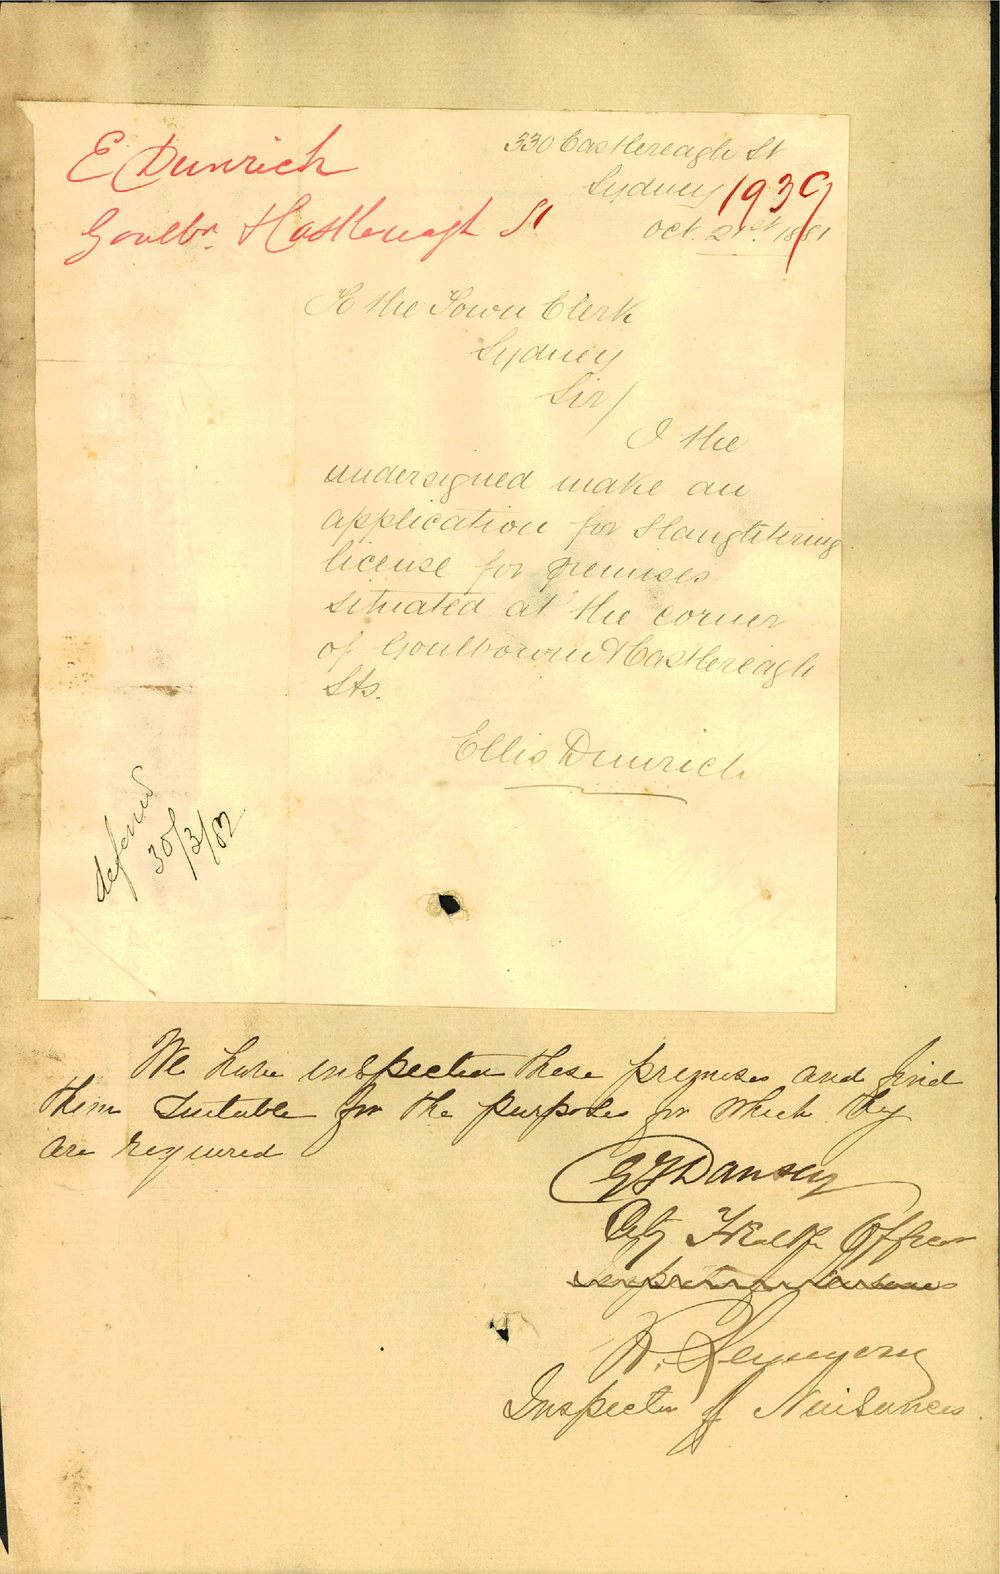 E Dunrich
Goulbn & Castlereagh St
330 Castlereagh St
Sydney
1939
Oct. 21st. 1881
To the Town Clerk
Sydney
Sir/
I the
undersigned make an
application for Slaughtering
license for premises
situated at the corner
of Goulbourn & Castlereagh
Sts.
Ellis Dunrich
deferred
30/3/82
We have inspected these premises and find
them Suitable for the purposes for which they
are required
G F Dansey
City Health Officer
Inspector of Nuisances
R. Seymour
Inspector of Nuisances